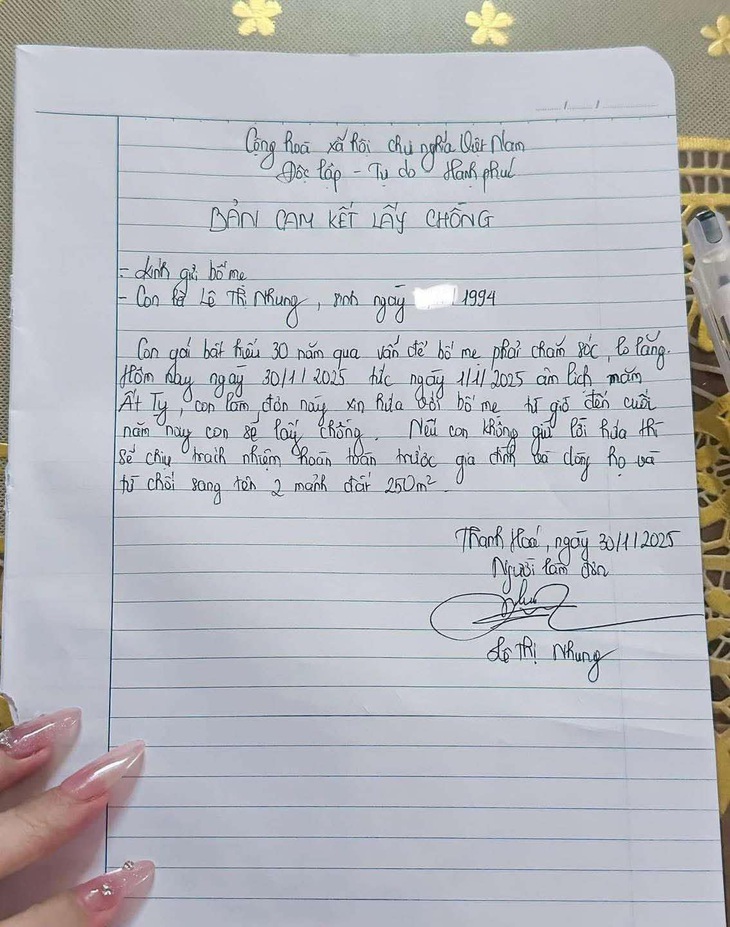 Cộng hoà xã hội chủ nghĩa Việt Nam
Độc lập - Tự do Hạnh phúc
BẢN CAM KẾT LẤY CHỒNG
- Kính gửi bố mẹ
- Con là Lê Thị Nhung, sinh ngày 1994
Con gái bất hiếu 30 năm qua vẫn để bố mẹ phải chăm sóc, lo lắng.
Hôm nay ngày 30/1/2025 tức ngày 1/1/2025 âm lịch năm
Ất Tỵ, con làm đơn này xin hứa với bố mẹ từ giờ đến cuối
năm nay con sẽ lấy chồng. Nếu con không giữ lời hứa thì
sẽ chịu trách nhiệm hoàn toàn trước gia đình và dòng họ và
từ chối sang tên 2 mảnh đất 250m²
Thanh Hoá, ngày 30/1/2025
Người làm đơn
Nhung
Lê Thị Nhung